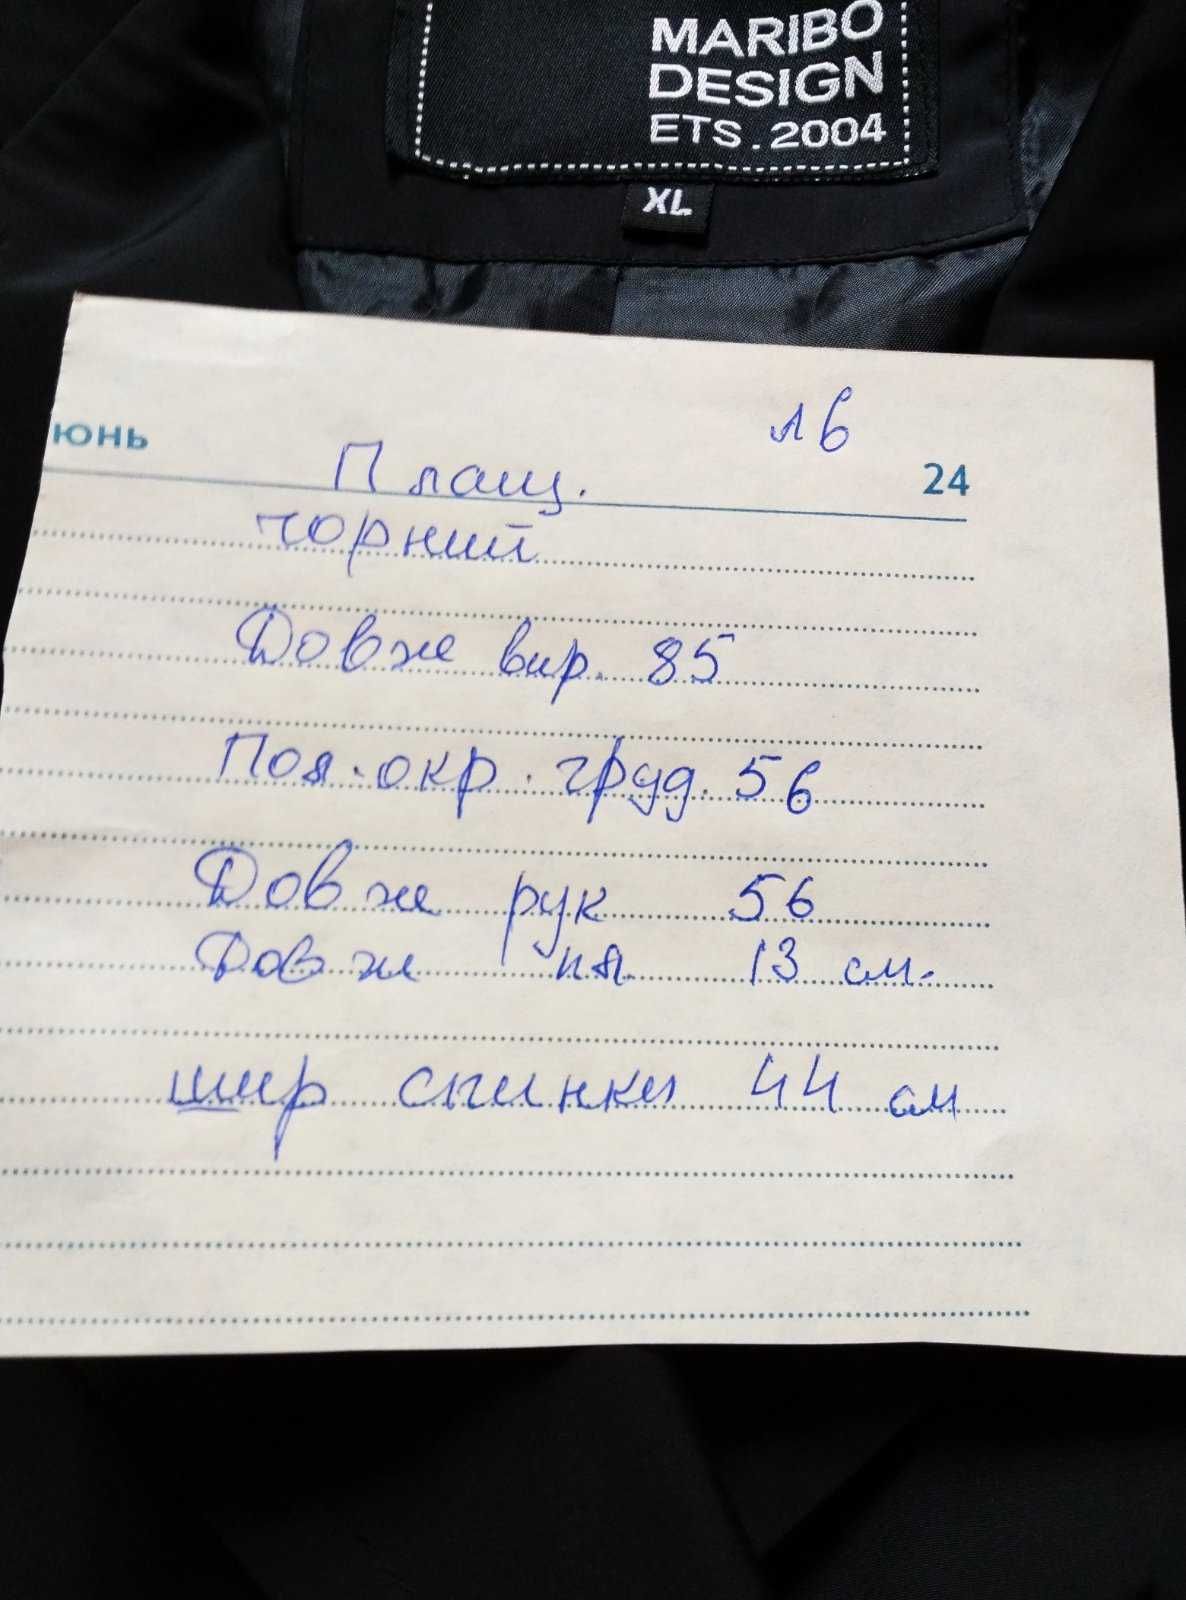 MARIBO
DESIGN
ETS. 2004
XL
л6
ЮНЬ
24
Плащ.
чорний
Довж вир. 85
Пол. окр. груд. 56
Довж рук 56
Довж пл 13 см.
шир спинки 44 см